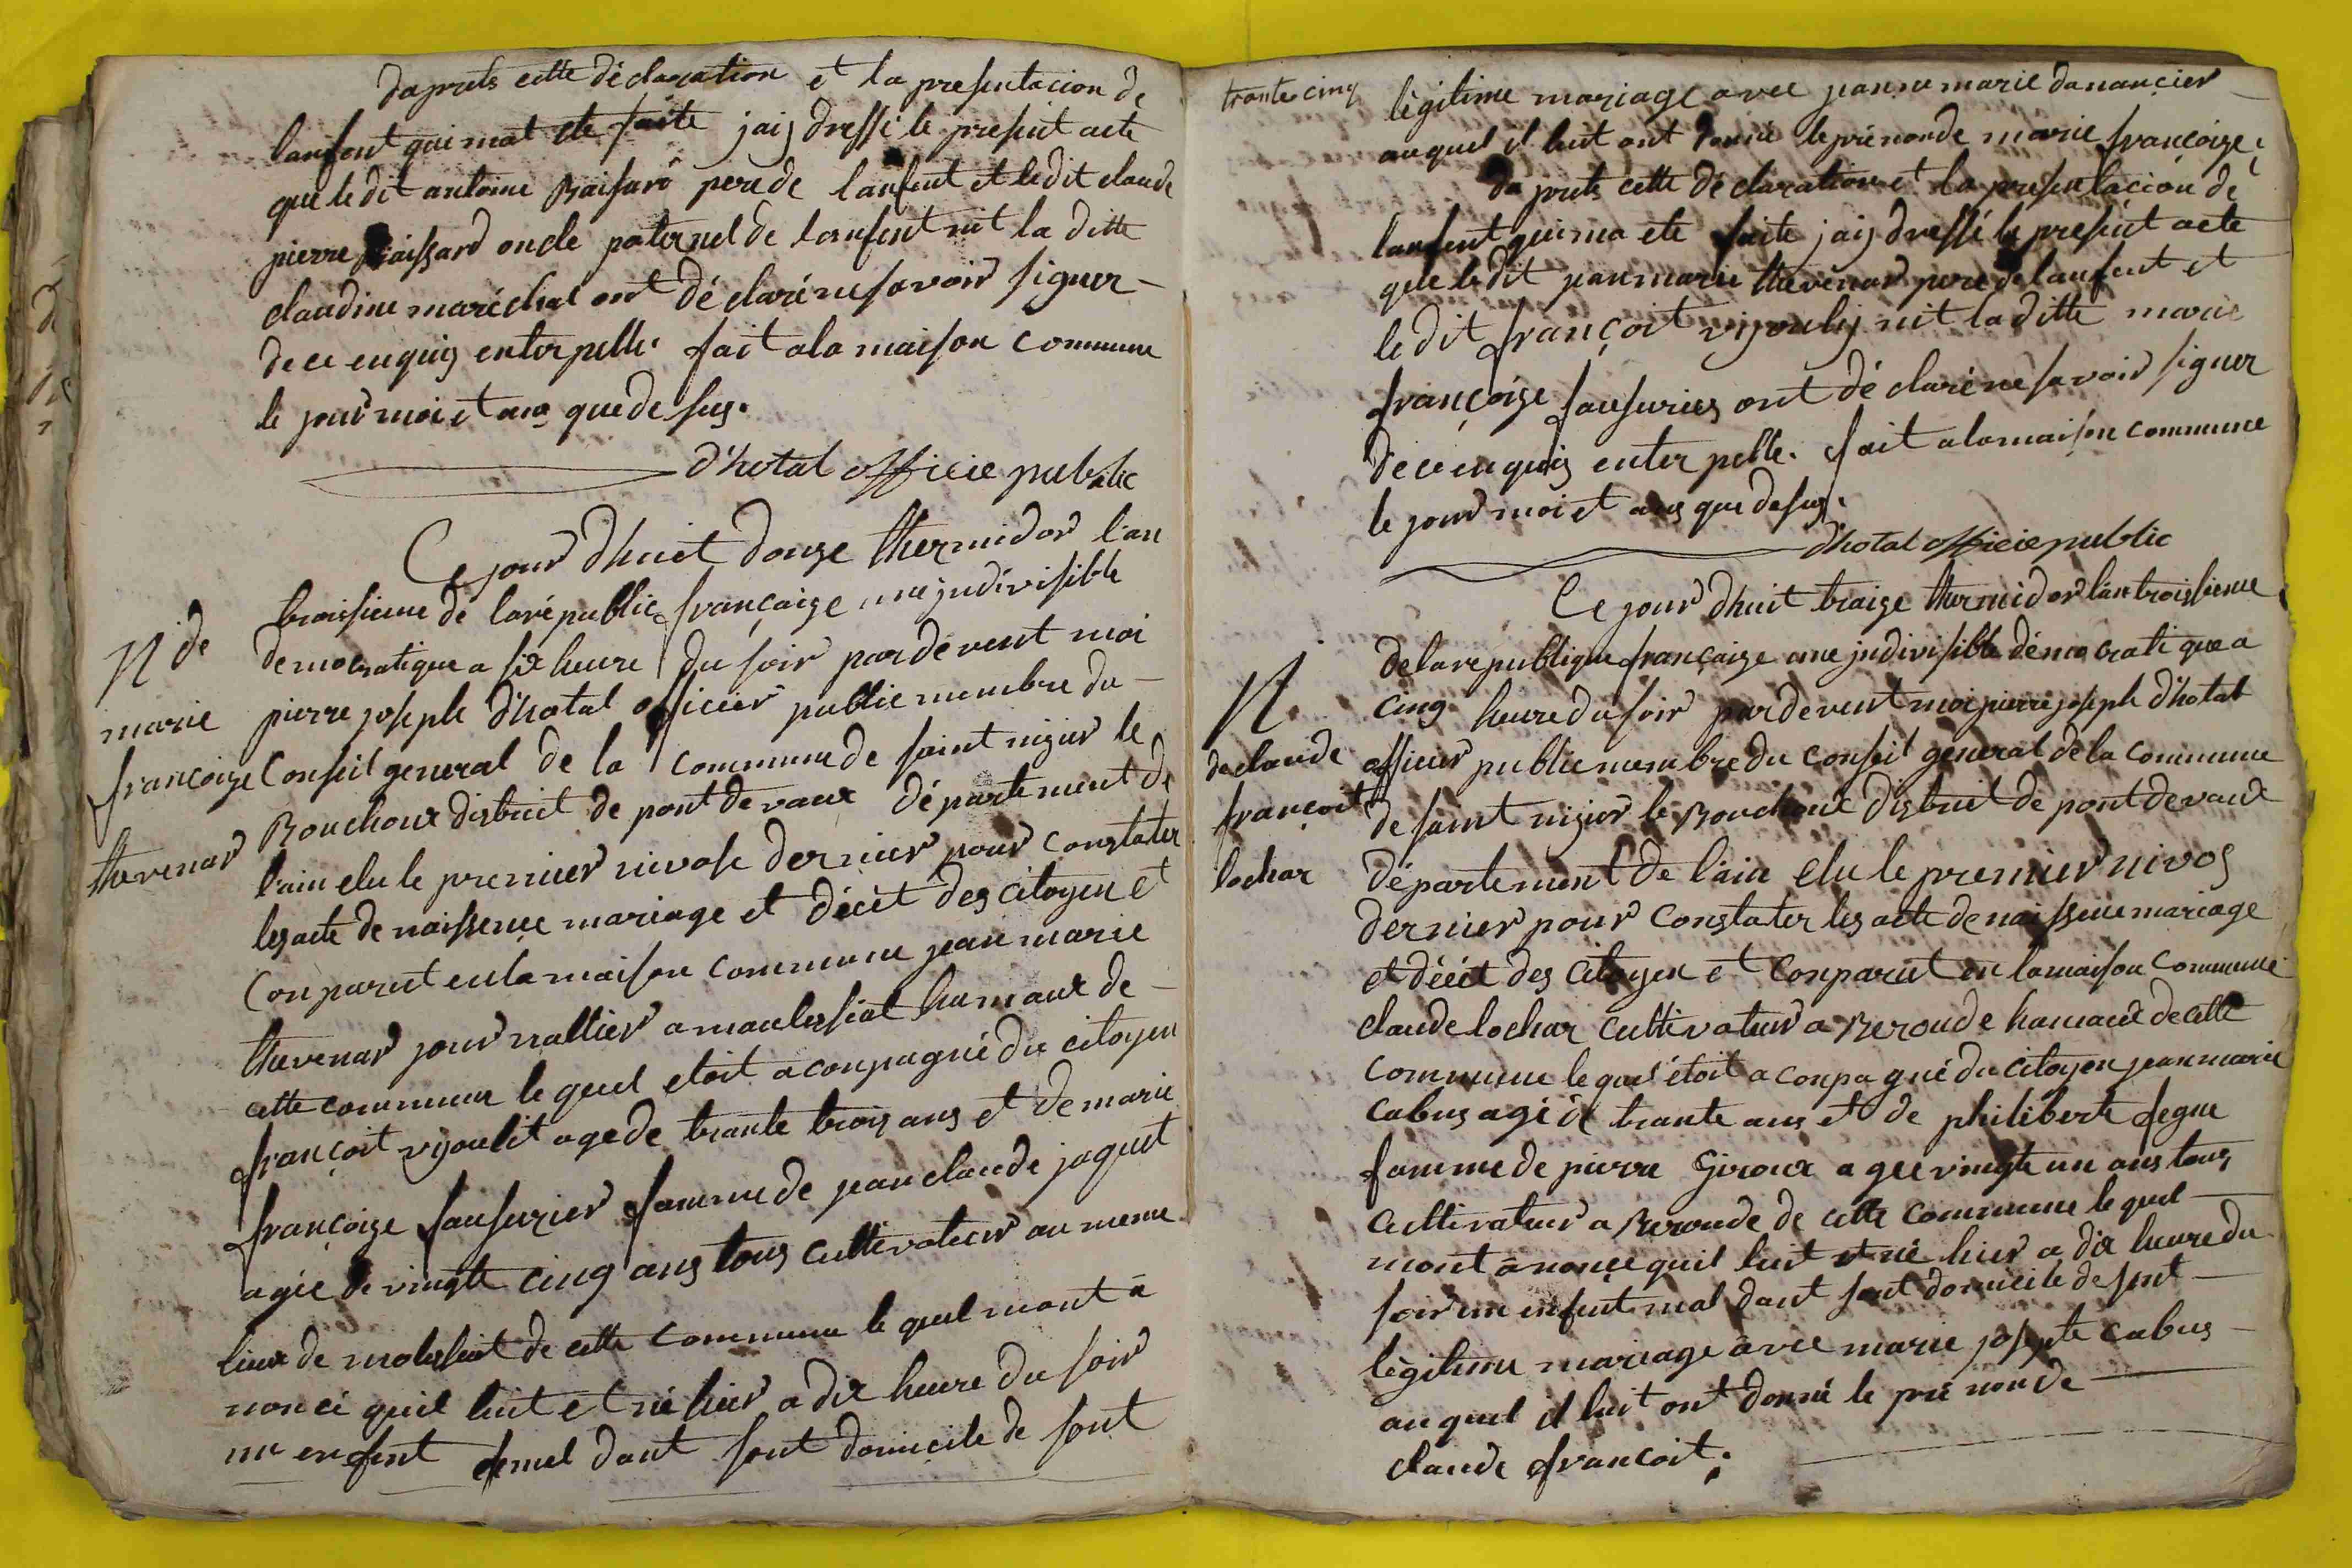 daprets cette déclaration et la presentacion de
lanfent qui mat ete faite jaij dressé le present acte
que le dit antoine Raisard pere de lanfent et le dit claude
pierre Raissard oncle paternel de lanfent nit la ditte
claudine maréchal ont déclaré ne savoir signer
de ce enquis enterpellé. fait a la maison commune
le jour moi et ans que desus.
d'hotal officie public
Ce jour dhuit douze thermidor l'an
troisieme de la républic françaize une jndivisible
democratique a six heure du soir pardevent moi
pierre joseph d'hotal officier public membre du
Conseil general de la commune de saint nizier le
Bouchoux district de pont de vaux département de
lain elu le premier nivose dernier pour constater
les acte de naissence mariage et décét des citoyen et
Conparut en la maison commune jean marie
thevenar journallier a maulissiat hamaux de
cette commune le quel etoit aconpagné du citoyen
françoit vijoulit age de trante trois ans et de marie
françoize fausurier famme de jean claude jaquet
agée de vingte cinq ans tous cultivateur au meme
lieux de molissiat de cette commune le quel mont a
noncé quil luit et né hier a dix heure du soir
un enfent femel dant sont domicile de sont
N de
marie
françoize
thevenar
trante cinq
légitime mariage avec janne marie dananciér
auquel il luit ont donné le prénon de marie françoize.
da prets cette déclaration et la presentacion de
lanfent qui ma ete faite jaij dressé le present acte
que le dit jean marie thevenar pere de lanfent et
le dit françoit vijoulij nit la ditte marie
françoize fausuries ont déclaré ne savoir signer
de ce enquis enterpellé. fait a la maison commune
le jour moi et ans que desus.
d'hotal officie public
Ce jour dhuit traize thermidor l'an troissieme
de la republique françaize une jndivisible démocratique a
cinq heure du soir pardevent moi pierre joseph d'hotal
officier public membre du conseil general de la commune
de saint nizier le Bouchoux distrit de pont de vaux
département de lain elu le premier nivos
dernier pour constater les acte de naissence mariage
et décét des citoyen et Conparut en la maison commune
claude lochar cultivateur a Beroude hamaux de cette
commune le quel étoit aconpagné du citoyen jean marie
cabus agé de trante ans et de philiberte fegue
famme de pierre Giroux agee vingte un ans tous
cultivateur a Beroude de cette commune le quel
mont anonce quil luit et né hier a dix heure du
soir un enfent mal dant sont domicile de sont
légitime mariage avec marie josepte cabus
auquel il luit ont donné le prénon de
claude francoit.
N
de claude
françoit
lochar